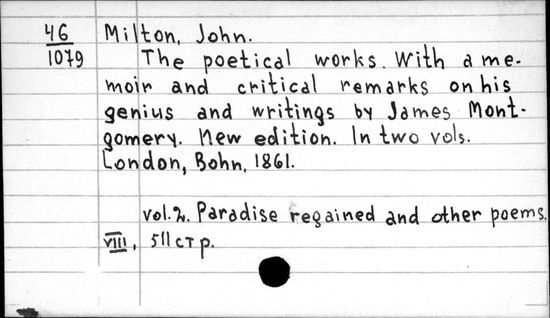 46
1079
Milton, John.
The poetical works. With a me-
moir and critical remarks on his
genius and writings by James Mont-
gomery. New edition. In two vols.
London, Bohn, 1861.
vol.2. Paradise regained and other poems.
VIII, 511 стр.